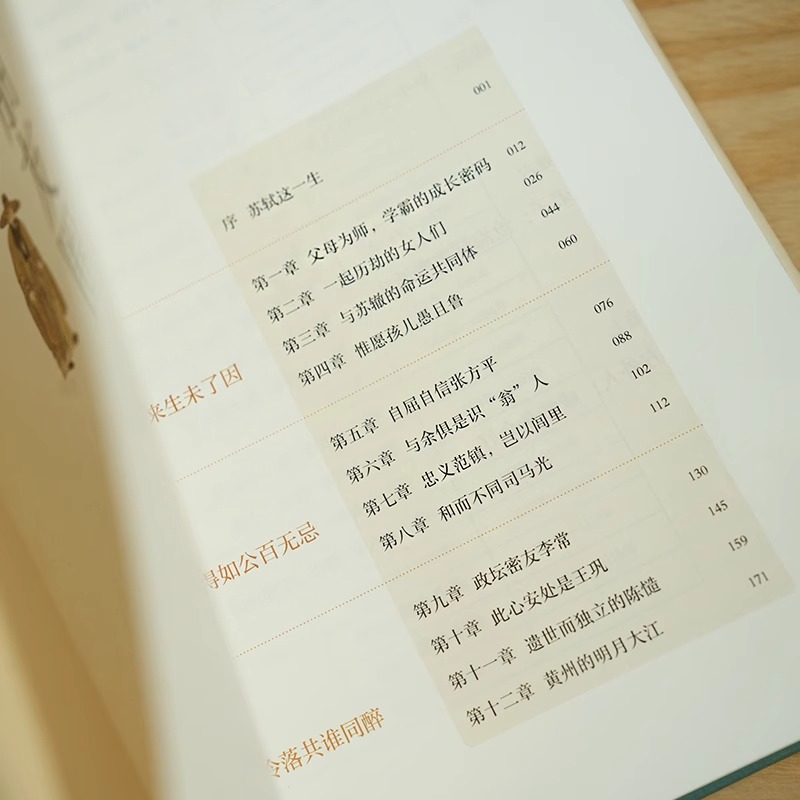 序 苏轼这一生 001
来生未了因
第一章 父母为师，学霸的成长密码 012
第二章 一起历劫的女人们 026
第三章 与苏辙的命运共同体 044
第四章 惟愿孩儿愚且鲁 060
得如公百无忌
第五章 自屈自信张方平 076
第六章 与余俱是识“翁”人 088
第七章 忠义范镇，岂以闾里 102
第八章 和而不同司马光 112
冷落共谁同醉
第九章 政坛密友李常 130
第十章 此心安处是王巩 145
第十一章 遗世而独立的陈慥 159
第十二章 黄州的明月大江 171